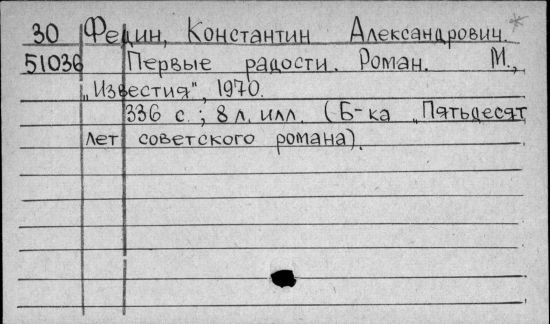 30 Федин, Константин Александрович.
51036 Первые радости. Роман. М.,
„Известия", 1970.
336 с.; 8 л. илл. (Б-ка „Пятьдесят
лет советского романа).